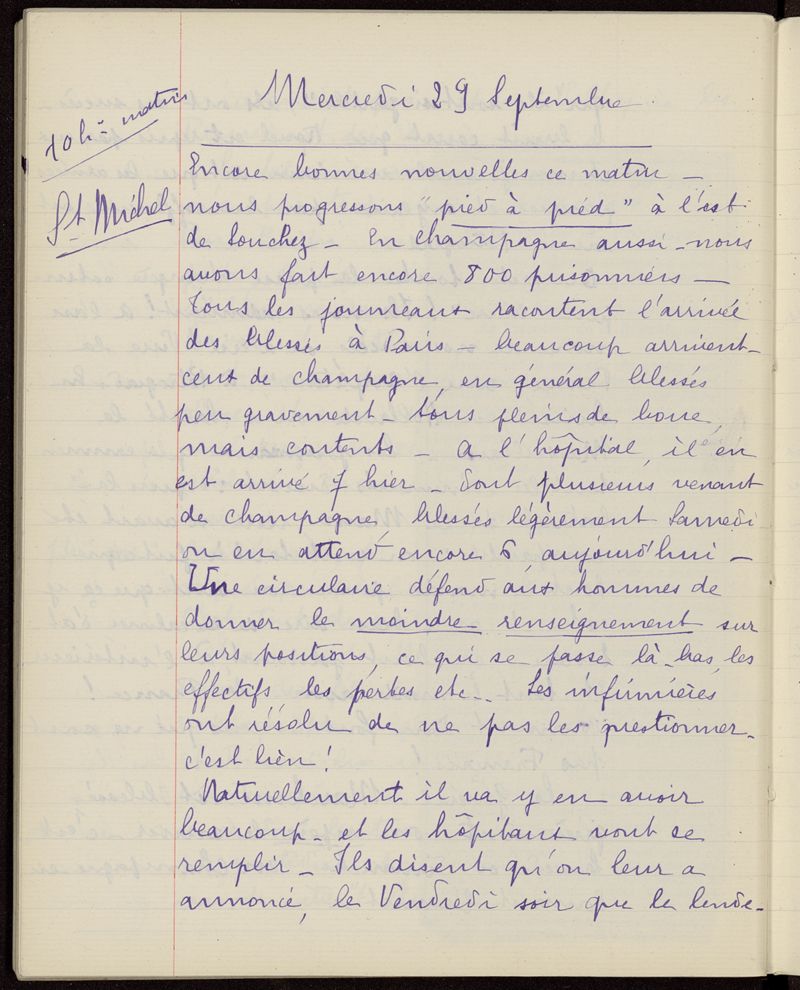 Mercredi 29 Septembre
10 h. matin
St Michel
Encore bonnes nouvelles ce matin –
nous progressons "pied à pied" à l'est
de Souchez – En champagne aussi – nous
avons fait encore 800 prisonniers –
Tous les journeaux racontent l'arrivée
des blessés à Paris – beaucoup arrivent –
cent de champagne, en général blessés
peu gravement – tous pleins de boue,
mais contents – a l'hôpital, il en
est arrivé 7 hier – dont plusieurs venant
de champagne, blessés légèrement Samedi
on en attend encore 5 aujourd'hui –
Une circulaire défend aux hommes de
donner le moindre renseignement sur
leurs positions, ce qui se passe là-bas, les
effectifs les pertes etc.. Les infirmières
ont résolu de ne pas les questionner –
c'est bien !
Naturellement il va y en avoir
beaucoup – et les hôpitaux vont se
remplir – Ils disent qu'on leur a
annoncé, le Vendredi soir que le lende-